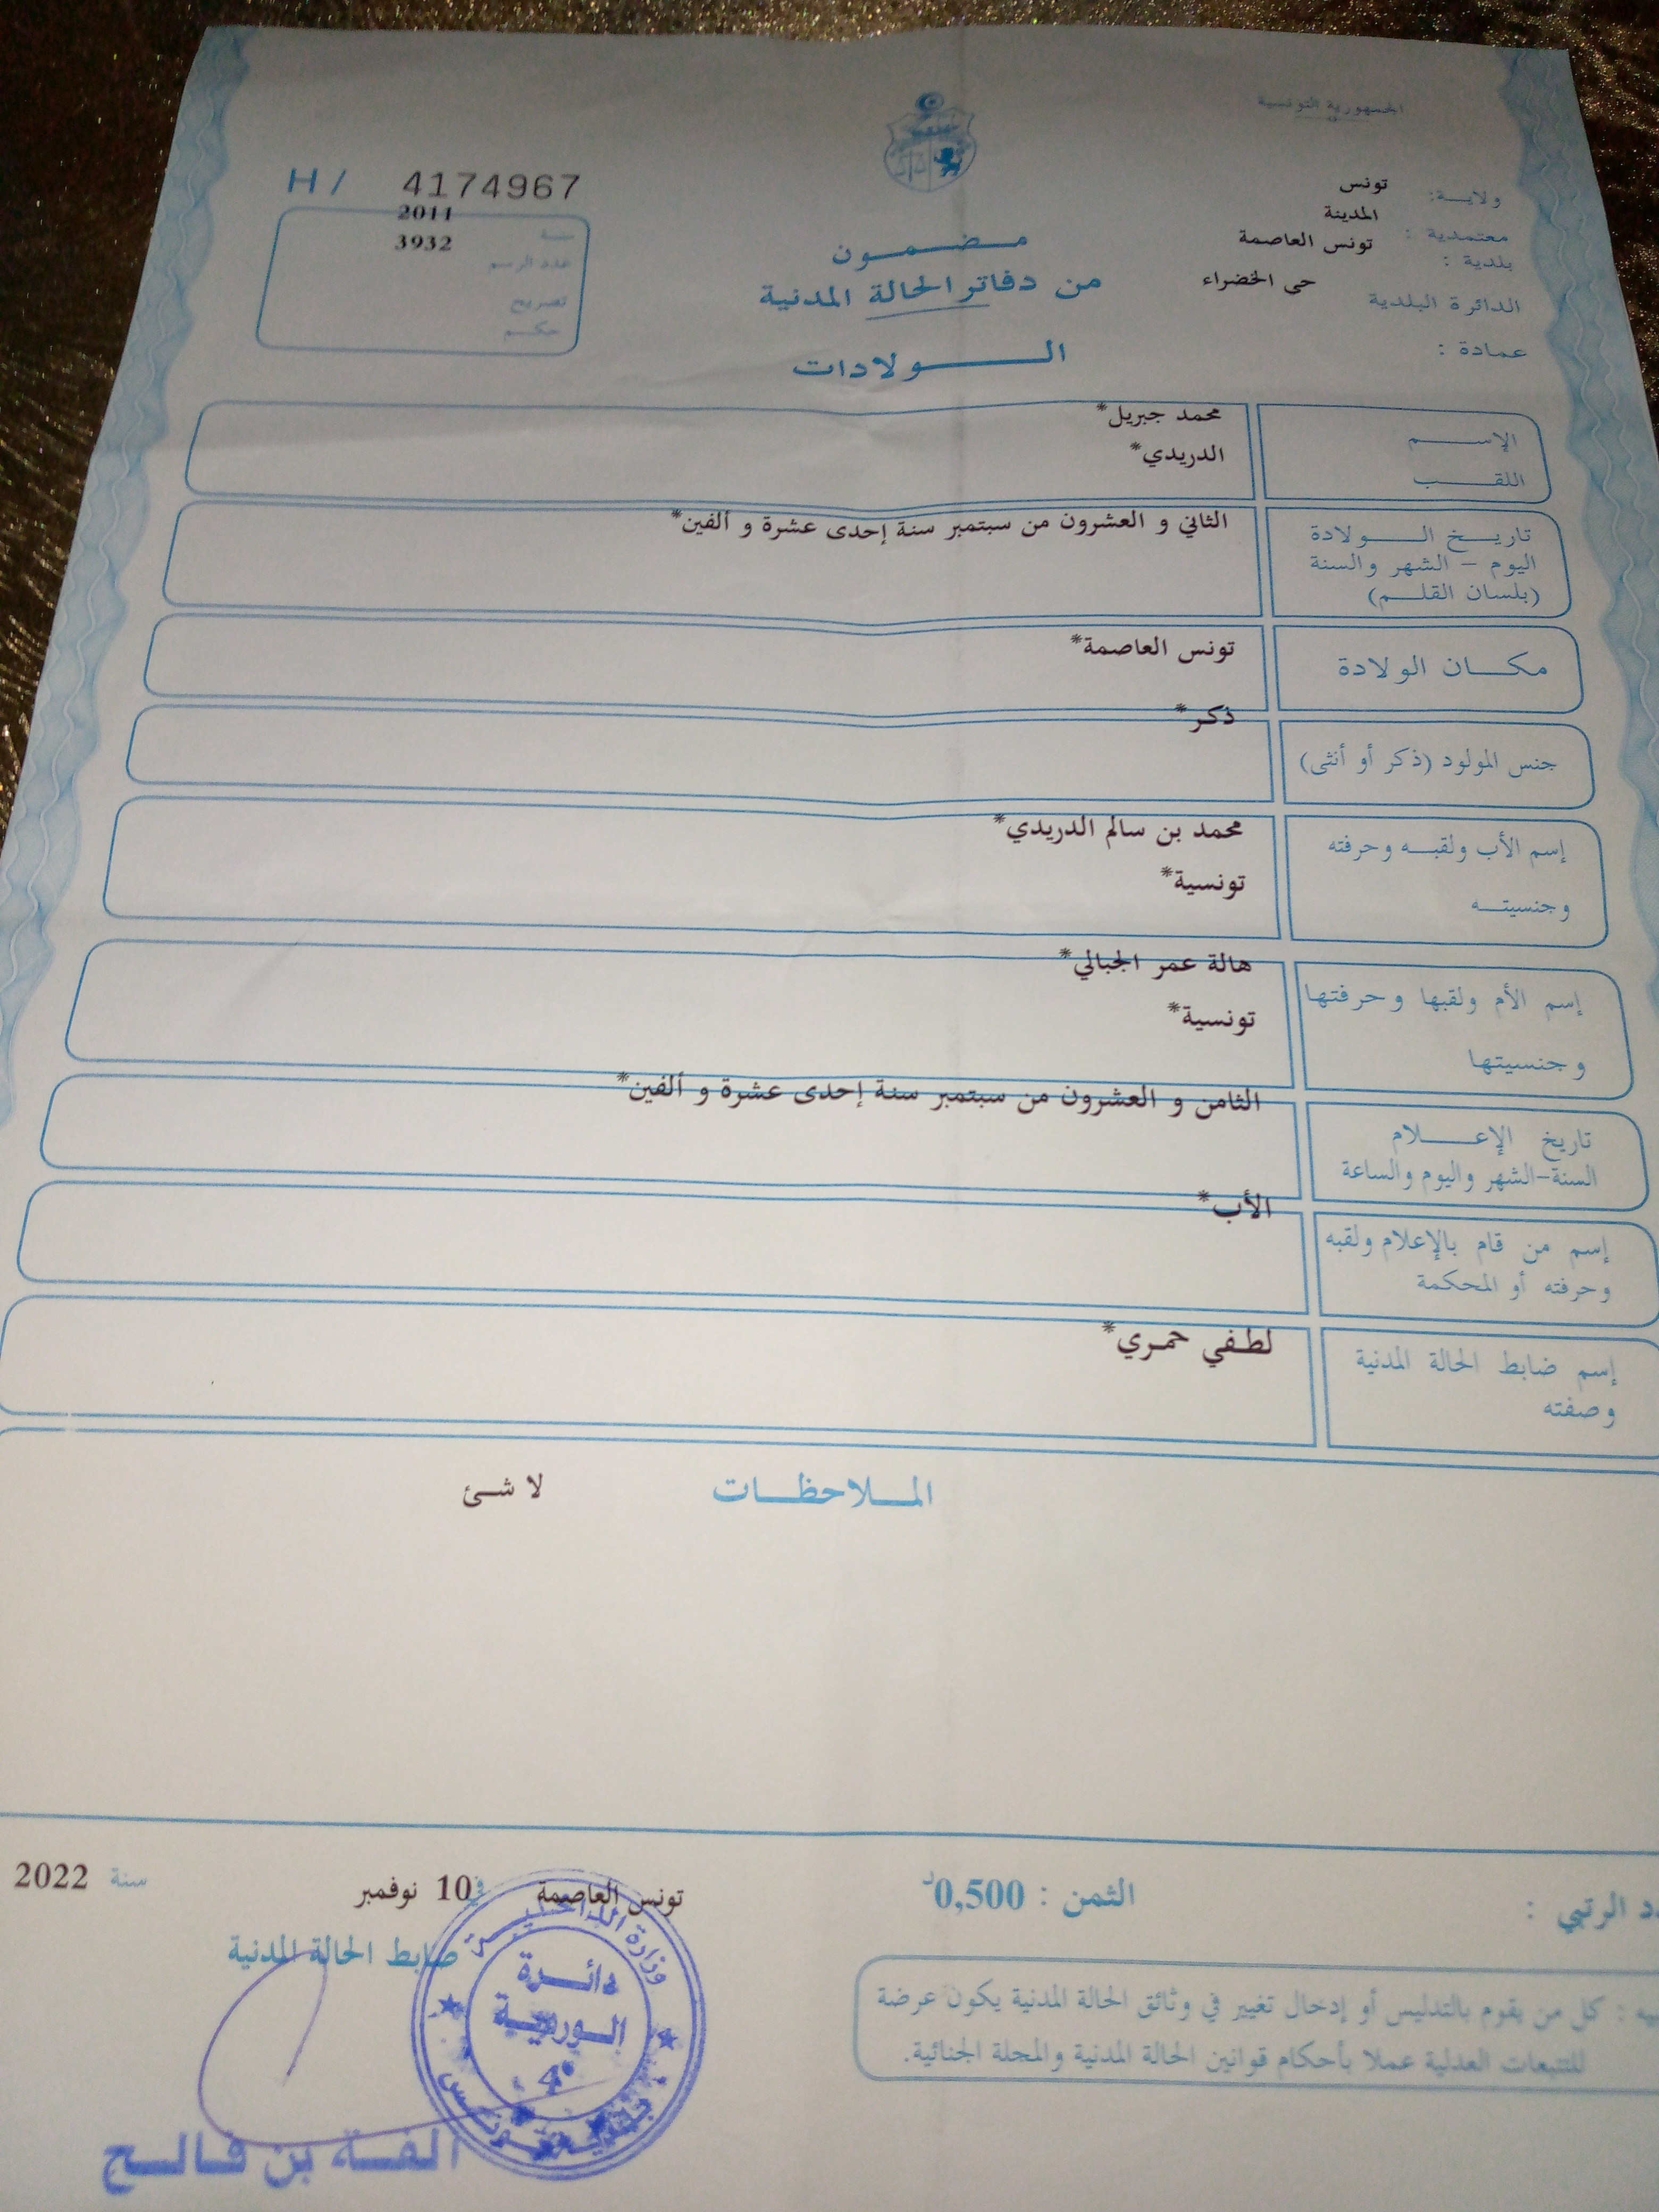 الجمهورية التونسية
ولاية: تونس
معتمدية : المدينة
بلدية : تونس العاصمة
الدائرة البلدية حى الخضراء
عمادة :
H / 4174967
سنة 2011
عدد الرسم 3932
تصريح
حكم
مضمون
من دفاتر الحالة المدنية
الولادات
الإسم محمد جبريل*
اللقب الدريدي*
تاريخ الولادة الثاني و العشرون من سبتمبر سنة إحدى عشرة و ألفين*
اليوم - الشهر والسنة
(بلسان القلم)
مكان الولادة تونس العاصمة*
جنس المولود (ذكر أو أنثى) ذكر*
إسم الأب ولقبه وحرفته محمد بن سالم الدريدي*
وجنسيته تونسية*
إسم الأم ولقبها وحرفتها هالة عمر الجبالي*
وجنسيتها تونسية*
تاريخ الإعلام الثامن و العشرون من سبتمبر سنة إحدى عشرة و ألفين*
السنة-الشهر واليوم والساعة
إسم من قام بالإعلام ولقبه الأب*
وحرفته أو المحكمة
إسم ضابط الحالة المدنية لطفي حمري*
وصفته
الملاحظات لا شئ
د الرتبي :
الثمن : 0,500د
تونس العاصمة في 10 نوفمبر سنة 2022
ضابط الحالة المدنية
يه : كل من يقوم بالتدليس أو إدخال تغيير في وثائق الحالة المدنية يكون عرضة
للتتبعات العدلية عملا بأحكام قوانين الحالة المدنية والمجلة الجنائية.
وزارة الداخلية
دائرة
الوردية
4
بلدية تونس
الفة بن فالح